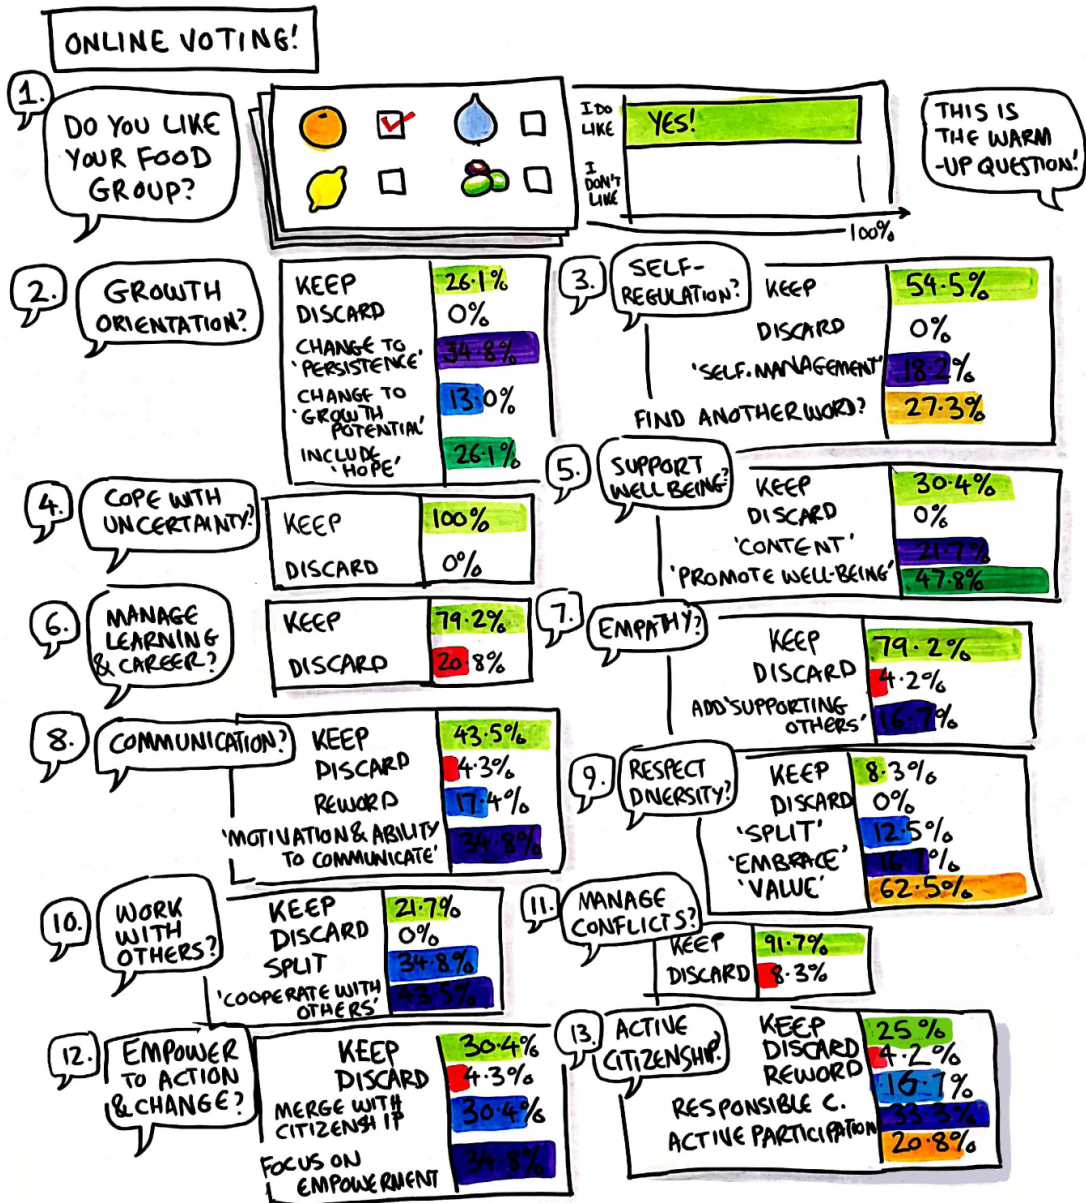 ONLINE VOTING!
1.
DO YOU LIKE
YOUR FOOD
GROUP?
I DO
LIKE
YES!
I
DON'T
LIKE
100%
THIS IS
THE WARM
-UP QUESTION!
2.
GROWTH
ORIENTATION?
KEEP 26.1%
DISCARD 0%
CHANGE TO
'PERSISTENCE' 34.8%
CHANGE TO
'GROWTH
POTENTIAL' 13.0%
INCLUDE
'HOPE' 26.1%
3.
SELF-
REGULATION?
KEEP 54.5%
DISCARD 0%
'SELF-MANAGEMENT' 18.2%
FIND ANOTHER WORD? 27.3%
4.
COPE WITH
UNCERTAINTY?
KEEP 100%
DISCARD 0%
5.
SUPPORT
WELLBEING?
KEEP 30.4%
DISCARD 0%
'CONTENT' 21.7%
'PROMOTE WELL-BEING' 47.8%
6.
MANAGE
LEARNING
& CAREER?
KEEP 79.2%
DISCARD 20.8%
7.
EMPATHY?
KEEP 79.2%
DISCARD 4.2%
ADD 'SUPPORTING
OTHERS' 16.7%
8.
COMMUNICATION?
KEEP 43.5%
DISCARD 4.3%
REWORD 17.4%
'MOTIVATION & ABILITY
TO COMMUNICATE' 34.8%
9.
RESPECT
DIVERSITY?
KEEP 8.3%
DISCARD 0%
'SPLIT' 12.5%
'EMBRACE' 16.7%
'VALUE' 62.5%
10.
WORK
WITH
OTHERS?
KEEP 21.7%
DISCARD 0%
SPLIT 34.8%
'COOPERATE WITH
OTHERS' 43.5%
11.
MANAGE
CONFLICTS?
KEEP 91.7%
DISCARD 8.3%
12.
EMPOWER
TO ACTION
& CHANGE?
KEEP 30.4%
DISCARD 4.3%
MERGE WITH
CITIZENSHIP 30.4%
FOCUS ON
EMPOWERMENT 34.8%
13.
ACTIVE
CITIZENSHIP?
KEEP 25%
DISCARD 4.2%
REWORD 16.7%
RESPONSIBLE C. 33.3%
ACTIVE PARTICIPATION 20.8%